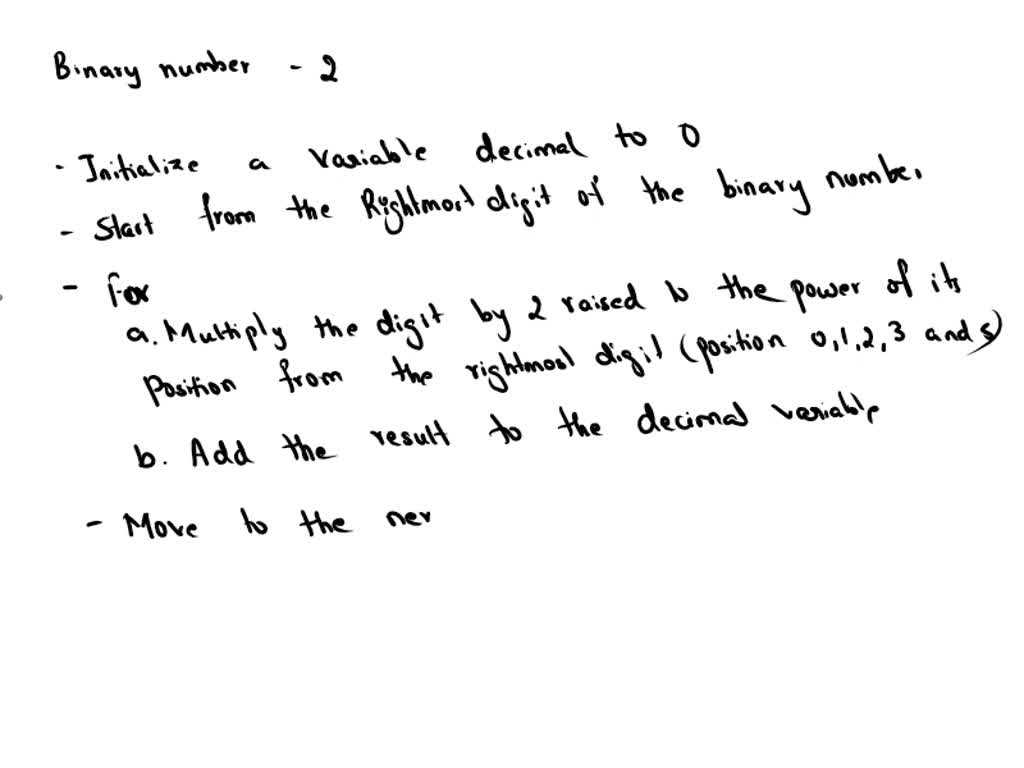 Binary number - 2
- Initialize a variable decimal to 0
- Start from the Rightmost digit of the binary number
- For
a. Multiply the digit by 2 raised to the power of its
Position from the rightmost digit (position 0,1,2,3 and s)
b. Add the result to the decimal variable
- Move to the nex